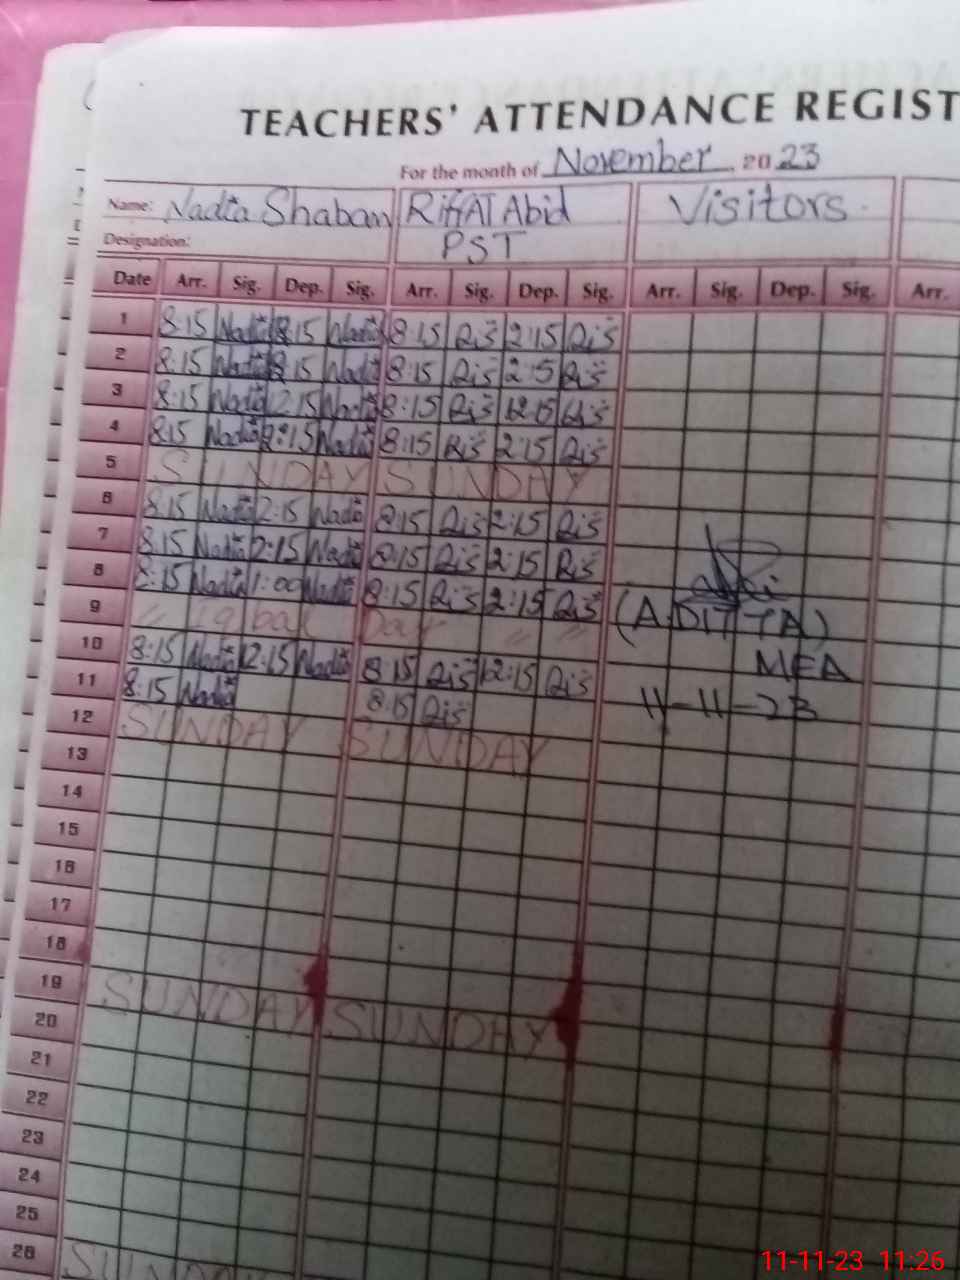 TEACHERS' ATTENDANCE REGIST
For the month of November 2023
Name: Nadia Shaban RiffAT Abid Visitors
Designation: PST
Date Arr. Sig. Dep. Sig. Arr. Sig. Dep. Sig. Arr. Sig. Dep. Sig. Arr.
1 8:15 Nadia 8:15 Nadia 8:15 2:15
2 8:15 Nadia 8:15 Nadia 8:15 2:5
3 8:15 Nadia 12:15 Nadia 8:15 12:15
4 8:15 Nadia 2:15 Nadia 8:15 2:15
5 SUNDAY SUNDAY
6 8:15 Nadia 2:15 Nadia 8:15 2:15
7 8:15 Nadia 2:15 Nadia 8:15 2:15
8 8:15 Nadia 1:00 Nadia 8:15 2:15
9 " Iqbal Day " "
(ADITTA)
10 8:15 Nadia 12:15 Nadia 8:15 12:15
MEA
11 8:15 Nadia 8:15
11-11-23
12 SUNDAY SUNDAY
13
14
15
16
17
18
19 SUNDAY SUNDAY
20
21
22
23
24
25
26 SUNDAY
11-11-23 11:26